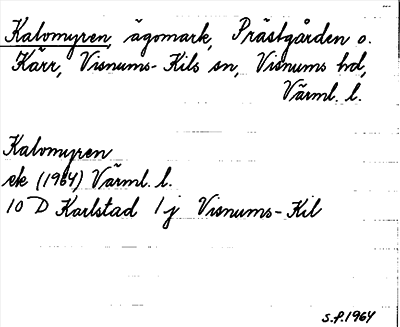 Kalomyren, ägomark, Prästgården o.
Kärr, Visnums-Kils sn, Visnums hd,
Värml. l.
Kalomyren
ek (1964) Värml. l.
10 D Karlstad 1j Visnums-Kil
S.P. 1964